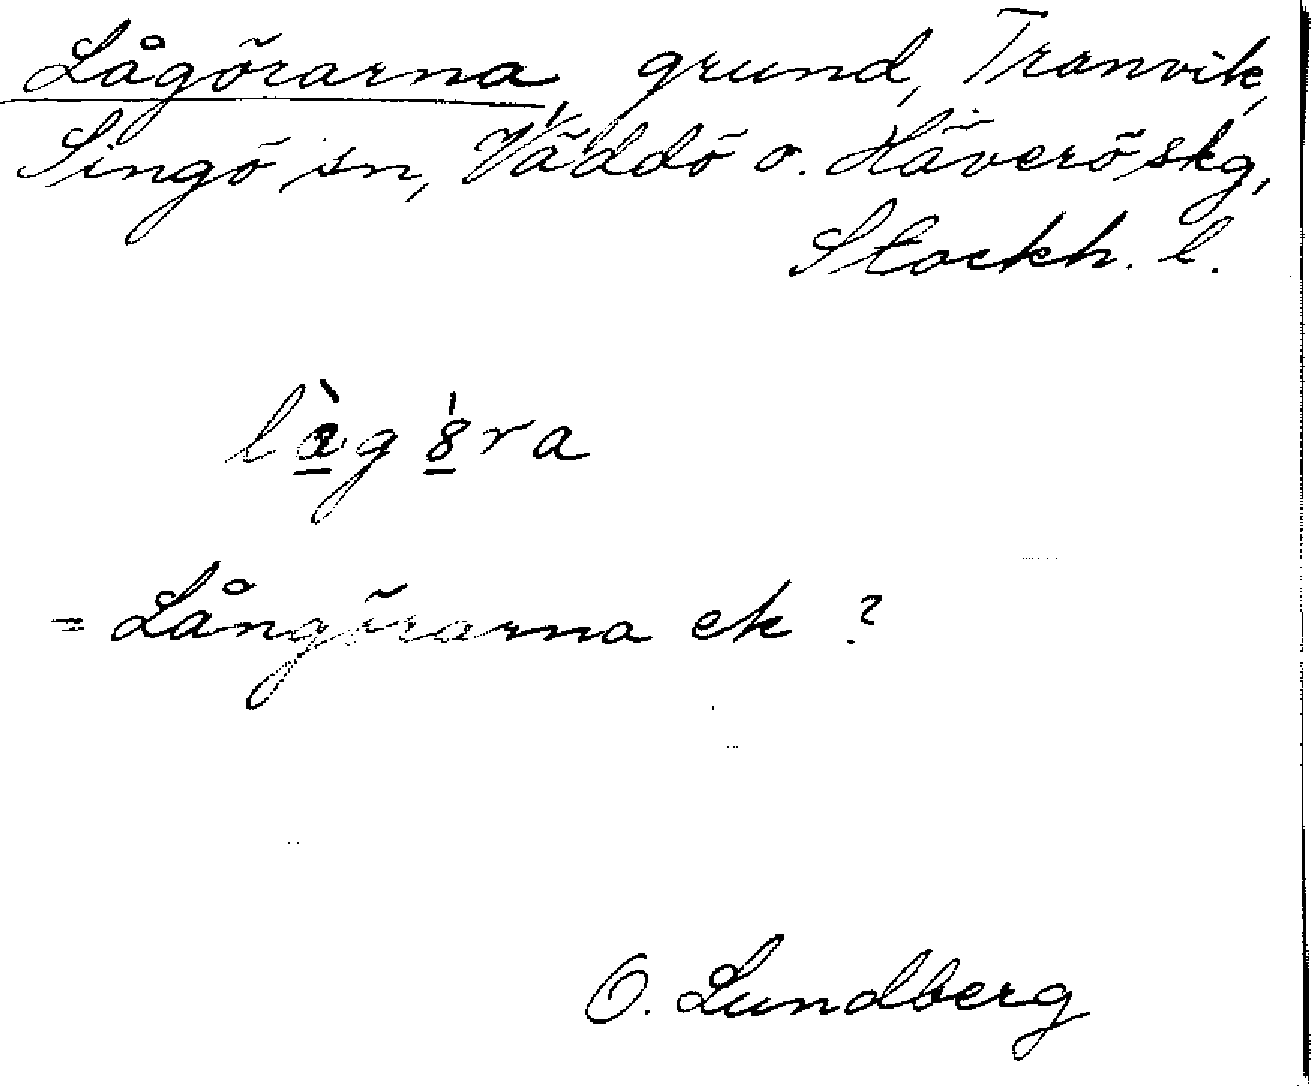 Lågörarna, grund, Tranvik,
Singö sn, Väddö o. Häverö skg,
Stockh. l.
làgöra
= Långörarna ek ?
O. Lundberg